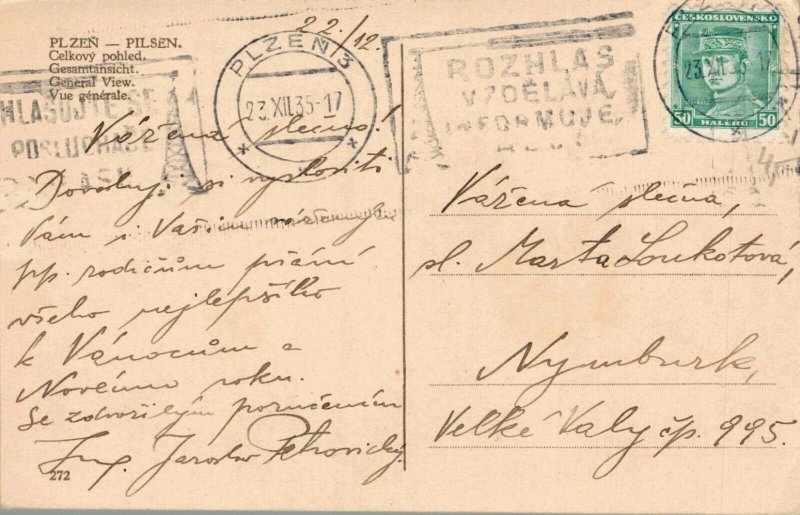 22./12.
PLZEŇ — PILSEN.
Celkový pohled.
Gesamtansicht.
General View.
Vue générale.
PLZEŇ 3
23.XII.35-17
ROZHLAS
VZDĚLÁVÁ
INFORMUJE
HLASUJTE SE
POSLUCHAČI
ČESKOSLOVENSKO
50 HALÉŘŮ 50
23.XII.35-17
Vážená slečno!
Dovoluji si vysloviti
Vám i Vašim
pp. rodičům přání
všeho nejlepšího
k Vánocům a
Novému roku.
Se zdvořilým poručením
Ing. Jaroslav Petrovický.
272
Vážená slečna,
sl. Marta Loukotová,
Nymburk,
Velké Valy čp. 995.